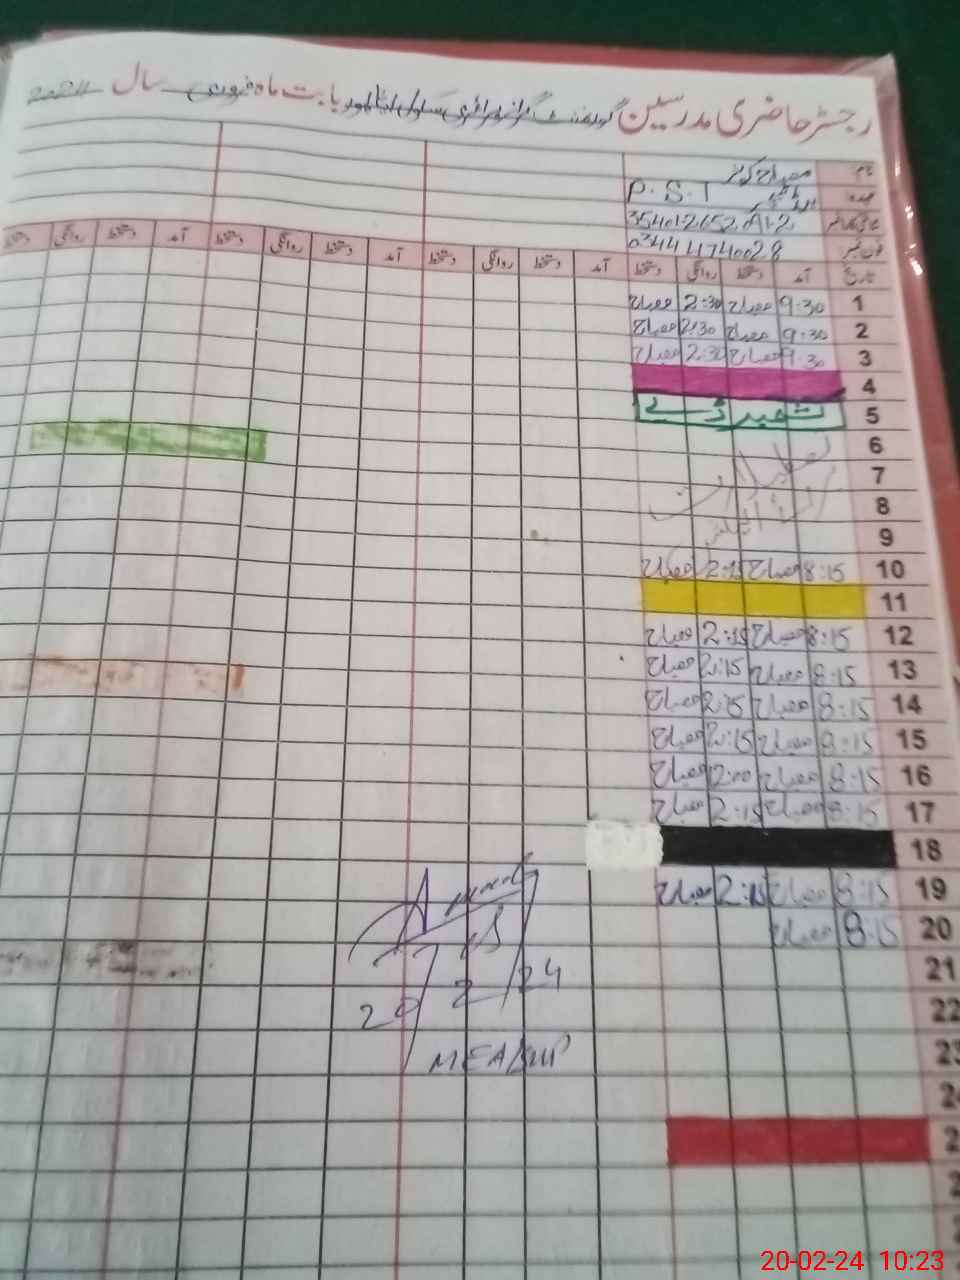 رجسٹر حاضری مدرسین گورنمنٹ گرلز پرائمری سکول بابت ماہ فروری سال 2024
نام مصباح کوثر
عہدہ P.S.T
شناختی کارڈ نمبر
فون نمبر 03444740028
تاریخ آمد دستخط روانگی دستخط آمد دستخط روانگی دستخط آمد دستخط روانگی دستخط
1 9:30 مصباح 2:30 مصباح
2 9:30 مصباح 2:30 مصباح
3 9:30 مصباح 2:30 مصباح
4
5 کشمیر ڈے
6 تعطیلات
7
8 الیکشن
9
10 8:15 مصباح 2:15 مصباح
11
12 8:15 مصباح 2:15 مصباح
13 8:15 مصباح 2:15 مصباح
14 8:15 مصباح 2:15 مصباح
15 8:15 مصباح 2:15 مصباح
16 8:15 مصباح 2:00 مصباح
17 8:15 مصباح 2:15 مصباح
18
19 8:15 مصباح 2:15 مصباح
20 8:15 مصباح
21
22
23
20/2/24
MEA
20-02-24 10:23